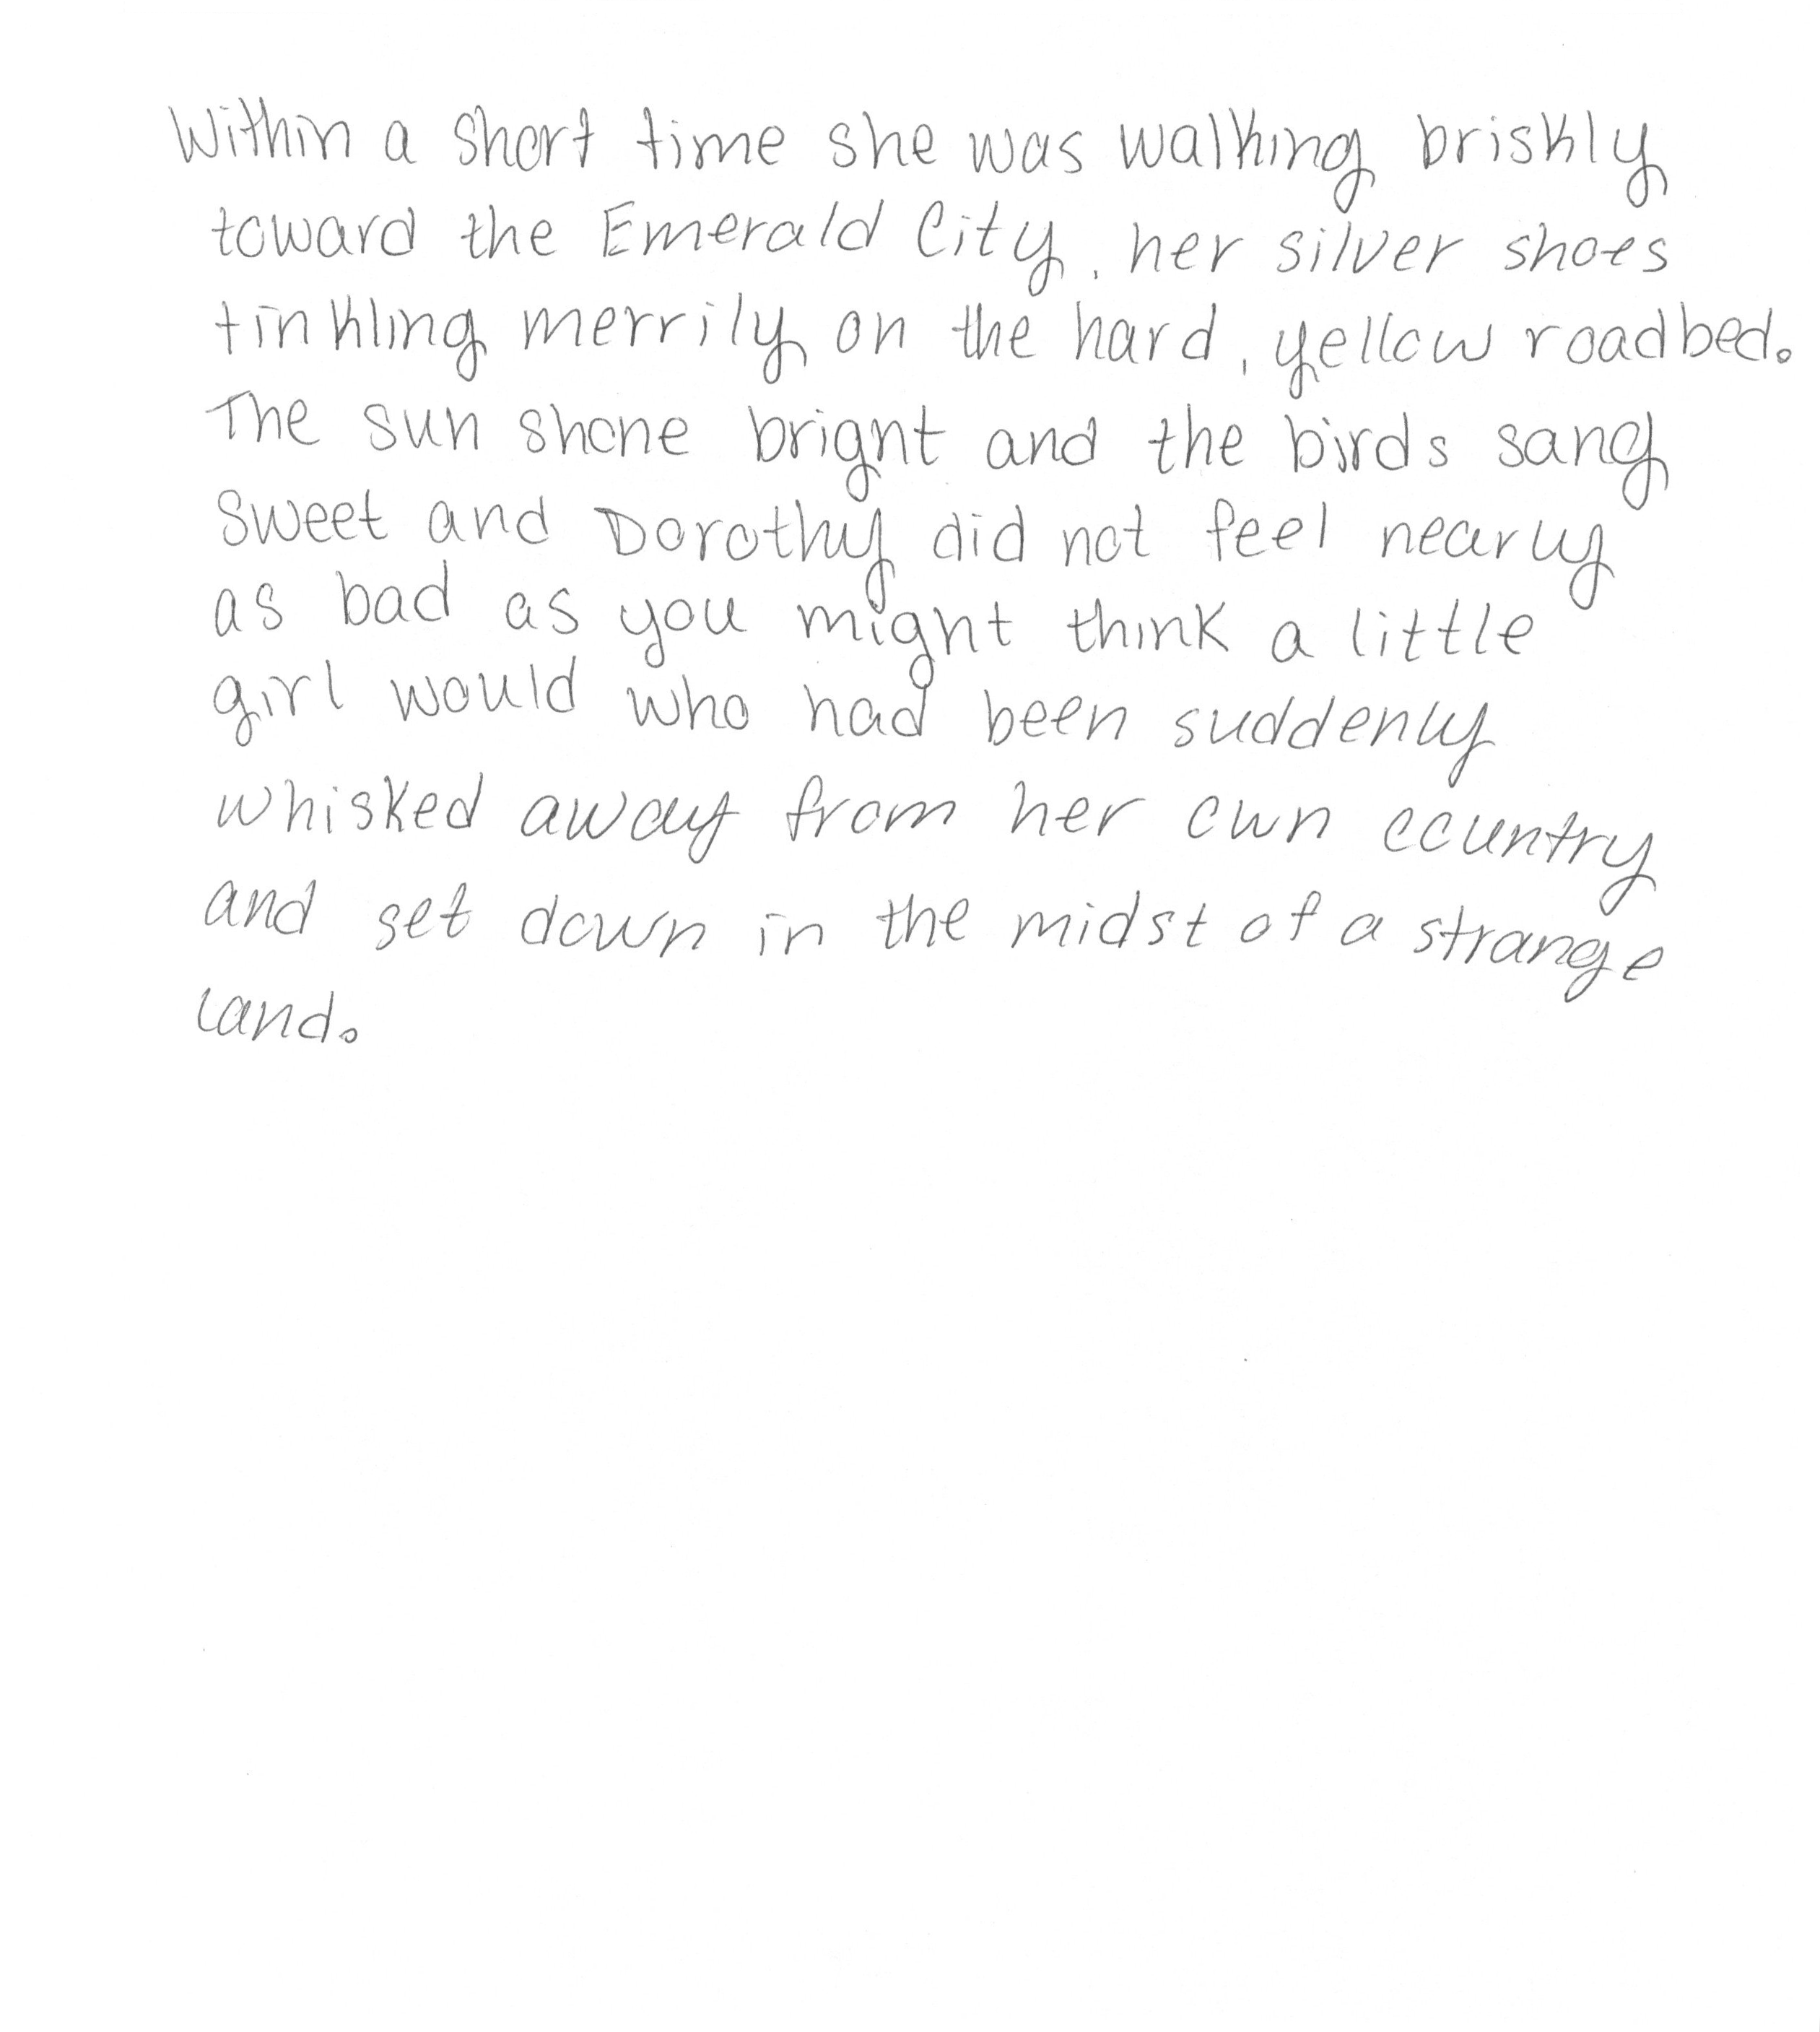 Within a short time she was walking briskly
toward the Emerald City, her silver shoes
tinkling merrily on the hard, yellow roadbed.
The sun shone bright and the birds sang
sweet and Dorothy did not feel nearly
as bad as you might think a little
girl would who had been suddenly
whisked away from her own country
and set down in the midst of a strange
land.